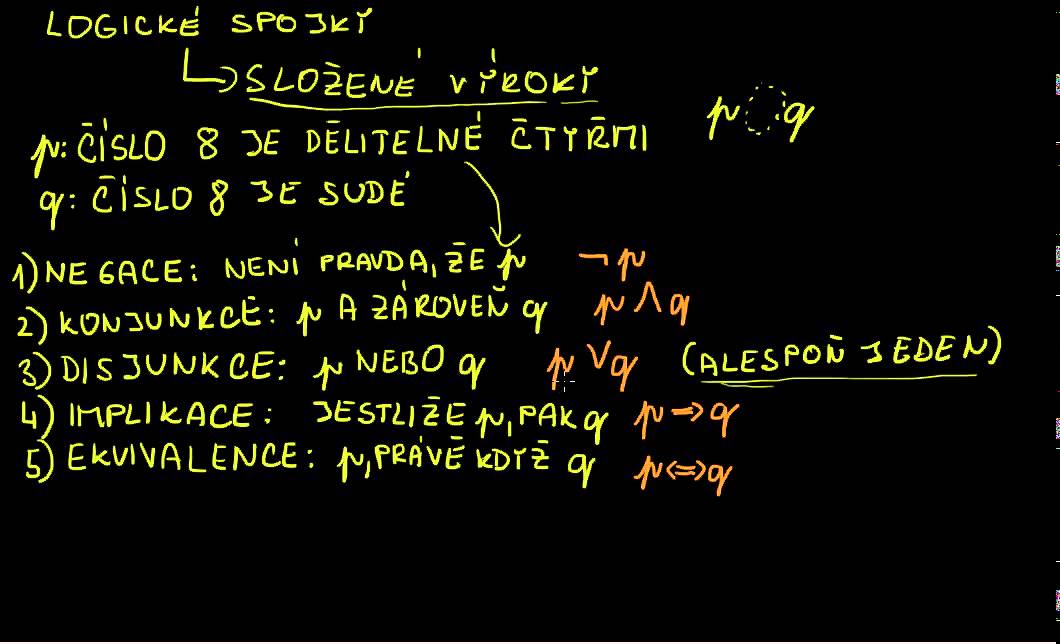 LOGICKÉ SPOJKY
↳ SLOŽENÉ VÝROKY
p ◌ q
p: ČÍSLO 8 JE DĚLITELNÉ ČTYŘMI
q: ČÍSLO 8 JE SUDÉ
1) NEGACE: NENÍ PRAVDA, ŽE p ¬p
2) KONJUNKCE: p A ZÁROVEŇ q p ∧ q
3) DISJUNKCE: p NEBO q p ∨ q (ALESPOŇ JEDEN)
4) IMPLIKACE: JESTLIŽE p, PAK q p ⇒ q
5) EKVIVALENCE: p, PRÁVĚ KDYŽ q p ⇔ q